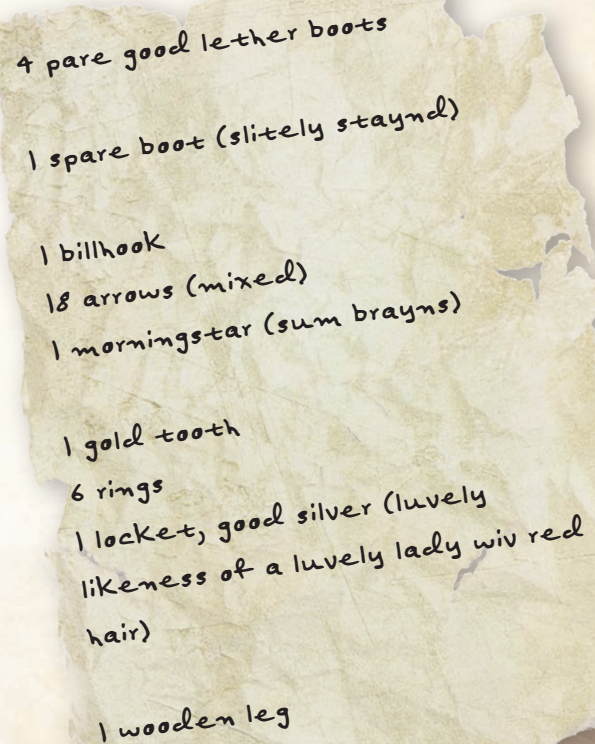 4 pare good lether boots
1 spare boot (slitely staynd)
1 billhook
18 arrows (mixed)
1 morningstar (sum brayns)
1 gold tooth
6 rings
1 locket, good silver (luvely
likeness of a luvely lady wiv red
hair)
1 wooden leg